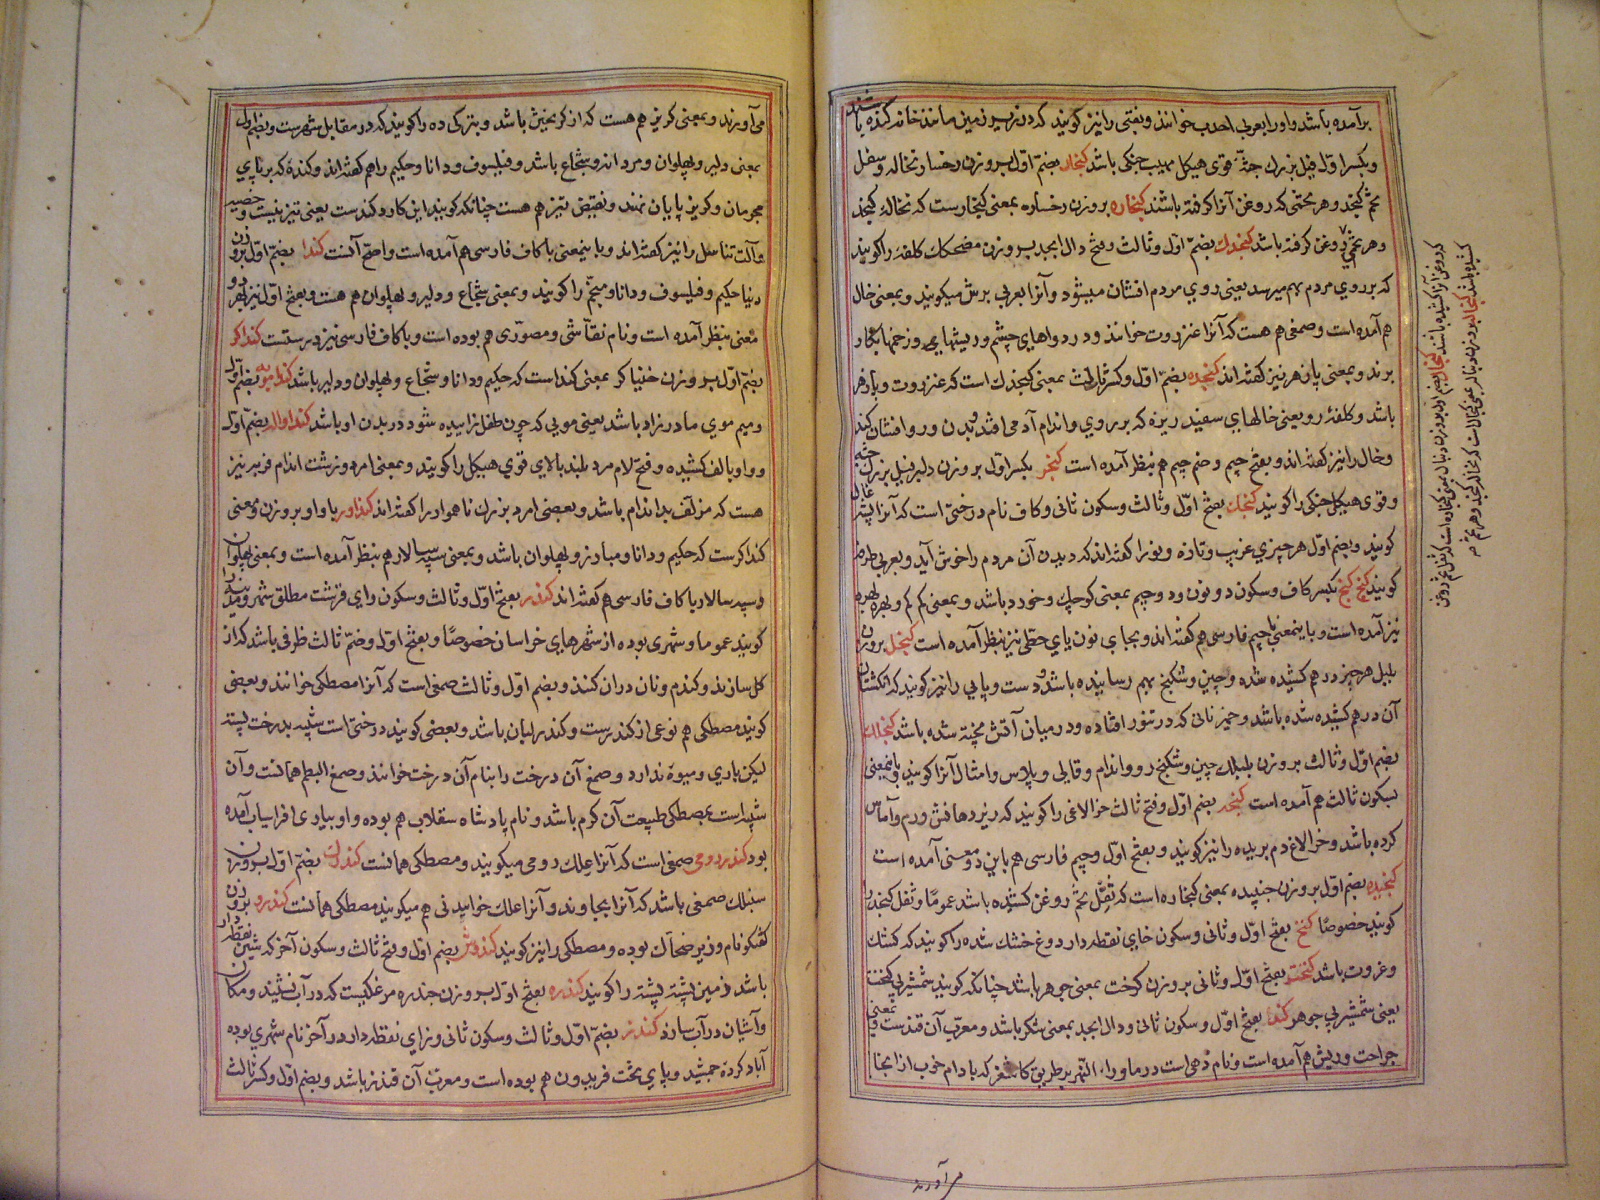 برآمده باشد و او را بعربی احدب خوانند و نقبی را نیز گویند که در زیر زمین مانند خانه کنده باشند
و بکسر اول فیل بزرک جثهٔ قوی هیکل مهیب جنکی باشد کنجار بضم اول بر وزن رخسار نخاله و ثفل
تخم کنجد و هر تخمی که روغن آنرا کرفته باشند کنجاره بر وزن رخساره بمعنی کنجارست که نخالهٔ کنجد
و هر تخمی روغن کرفته باشد کنجدک بضم اول و ثالث و فتح دال ابجد بر وزن مضحکک کلفهٔ را کویند
که بر روی مردم بهم میرسد یعنی روی مردم افشان میشود و آنرا بعربی برش میکویند و بمعنی خال
هم آمده است و صمغی هم هست که آنرا عنزروت خوانند و در دواهای چشم و ریشهای و زخمها بکار
برند و بمعنی پازهر نیز کفته‌اند کنجده بضم اول و کسر ثالث بمعنی کنجدک است که عنزروت و پازهر
باشد و کلفهٔ رو یعنی خالهای سفید ریزه که بر روی و اندام آدمی افتد و بدن و رو افشان کند
و خال را نیز کفته‌اند و بفتح جیم و ضم جیم هم بنظر آمده است کنجر بکسر اول بر وزن دلبر فیل بزرک جثه
و قوی هیکل جنکی را کویند کنجک بفتح اول و ثالث و سکون ثانی و کاف نام درختی است که آنرا پشه غال
کویند و بضم اول هر چیزی غریب و تازه و نو را کفته‌اند که دیدن آن مردم را خوش آید و بعربی طرفه
کویند کنج کنج بکسر کاف و سکون دو نون و دو جیم بمعنی کوچک و خورد باشد و بمعنی کم کم و بهره بهره
نیز آمده است و باینمعنی با جیم فارسی هم کفته‌اند و بجای نون یای حطی نیز بنظر آمده است کنجل بر وزن
بلبل هر چیز درهم کشیده شده و چین و شکنج بهم رسانیده باشد و دست و پایی را نیز کویند که انکشتان
آن درهم کشیده شده باشد و خمیر نانی که در تنور افتاده و در میان آتش پخته شده باشد کنجلک
بضم اول و ثالث بر وزن بلبلک چین و شکنج رو و اندام و قالی و پلاس و امثال آنرا کویند و باینمعنی
بسکون ثالث هم آمده است کنجه بضم اول و فتح ثالث خر الاغی را کویند که زیر دهانش ورم و آماس
کرده باشد و خر الاغ دم بریده را نیز کویند و بفتح اول و جیم فارسی هم باین دو معنی آمده است
کنجیده بضم اول بر وزن جنبیده بمعنی کنجاره است که ثفل تخم روغن کشیده باشد عموما و ثفل کنجد را
کویند خصوصا کنخ بفتح اول و ثانی و سکون خای نقطه‌دار دوغ خشک شده را کویند که کشک
و قروت باشد کنخت بفتح اول و ثانی بر وزن کرخت بمعنی جوهر باشد چنانکه کویند شمشیر بی کنخت
یعنی شمشیر بی جوهر کند بفتح اول و سکون ثانی و دال ابجد بمعنی شکر باشد و معرب آن قندست و بمعنی
جراحت و ریش هم آمده است و نام دهی است در ماوراء النهر بر طریق کاشغر که بادام خوب از آنجا
می‌آورند
که روغن آنرا کشیده باشند کنجال بضم اول بر وزن دنبال بمعنی کنجاره است که ثفل تخم روغن
کشیده باشد کنجاله بر وزن دنباله بمعنی کنجال است که نخاله کنجد و هر تخم
می‌آورند و بمعنی کریز هم هست که از کریختن باشد و بترکی ده را کویند که در مقابل شهرست و بضم اول
بمعنی دلیر و پهلوان و مردانه و شجاع باشد و فیلسوف و دانا و حکیم را هم کفته‌اند و کندهٔ که بر پای
مجرمان و کریز پایان نهند و نقیض تیز هم هست چنانکه کویند این کارد کندست یعنی تیز نیست و خصیه
و آلت تناسل را نیز کفته‌اند و باینمعنی با کاف فارسی هم آمده است و اصح آنست کندا بضم اول بر وزن
دنیا حکیم و فیلسوف و دانا و منجم را کویند و بمعنی شجاع و دلیر و پهلوان هم هست و بفتح اول نیز بهر دو
معنی بنظر آمده است و نام نقاشی و مصوری هم بوده است و با کاف فارسی نیز درستست کنداکر
بضم اول بر وزن خنیاکر بمعنی کنداست که حکیم و دانا و شجاع و پهلوان و دلیر باشد کندامویه بضم اول
و میم موی مادر زاد باشد یعنی مویی که چون طفل زاییده شود در بدن او باشد کنداواله بضم اول
و واو بالف کشیده و فتح لام مرد بلند بالای قوی هیکل را کویند و بمعنی امرد زشت اندام فربه نیز
هست که مزلف بد اندام باشد و بعضی امرد بزرک ناهموار را کفته‌اند کنداور با واو بر وزن و معنی
کنداکرست که حکیم و دانا و مبارز و پهلوان باشد و بمعنی سپه سالار هم بنظر آمده است و بمعنی پهلوان
و سپه سالار با کاف فارسی هم کفته‌اند کندر بفتح اول و ثالث و سکون و رای قرشت مطلق شهر و مدینه را
کویند عموما و شهری بوده از شهرهای خراسان خصوصا و بفتح اول و ضم ثالث ظرفی باشد که از
کل سازند و کندم و نان در آن کنند و بضم اول و ثالث صمغی است که آنرا مصطکی خوانند و بعضی
کویند مصطکی هم نوعی از کندرست و کندر لبان باشد و بعضی کویند درختی است شبیه بدرخت پسته
لیکن باری و میوهٔ ندارد و صمغ آن درخت را بنام آن درخت خوانند و صمغ البطم همانست و آن
شبیه است بمصطکی طبیعت آن کرم باشد و نام پادشاه سقلاب هم بوده و او بیاری افراسیاب آمده
بود کندر رومی صمغی است که آنرا علک رومی میکویند و مصطکی همانست کندرک بضم اول بر وزن
سنبلک صمغی باشد که آنرا بجاوند و آنرا علک خوانیدنی هم میکویند مصطکی همانست کندرو بر وزن
کفتکو نام وزیر ضحاک بوده و مصطکی را نیز کویند کندروش بضم اول و فتح ثالث و سکون آخر که شین نقطه‌دار
باشد زمین پشته پشته را کویند کندره بفتح اول بر وزن جندره مرغکیست که در آب نشیند و مکان
و آشیان در آب سازد کندز بضم اول و ثالث و سکون ثانی و زای نقطه‌دار در آخر نام شهری بوده
آباد کردهٔ جمشید و پای تخت فریدون هم بوده است و معرب آن قندز باشد و بضم اول و کسر ثالث